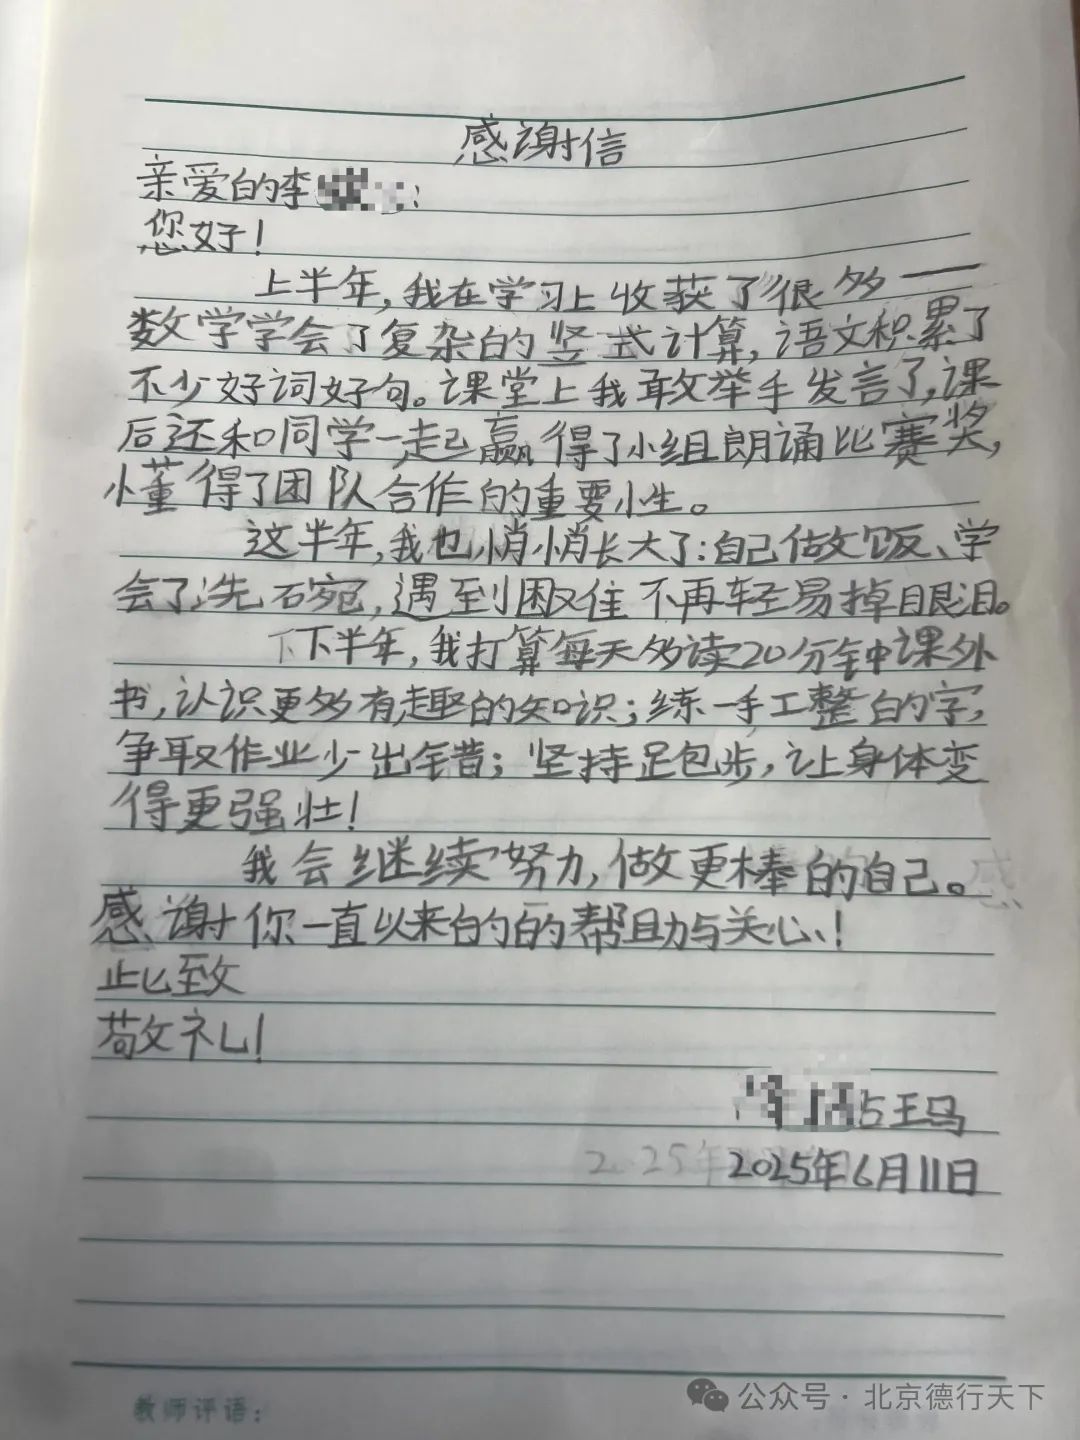 感谢信
亲爱的李:
您好!
上半年,我在学习上收获了很多——
数学学会了复杂的竖式计算,语文积累了
不少好词好句。课堂上我敢举手发言了,课
后还和同学一起赢得了小组朗诵比赛奖,
懂得了团队合作的重要性。
这半年,我也悄悄长大了:自己做饭、学
会了洗碗,遇到困难不再轻易掉眼泪。
下半年,我打算每天多读20分钟课外
书,认识更多有趣的知识;练一手工整的字,
争取作业少出错;坚持足包步,让身体变
得更强壮!
我会继续努力,做更棒的自己。
感谢你一直以来的的帮助与关心!
此致
敬礼!
王马
2025年6月11日
教师评语:
公众号·北京德行天下